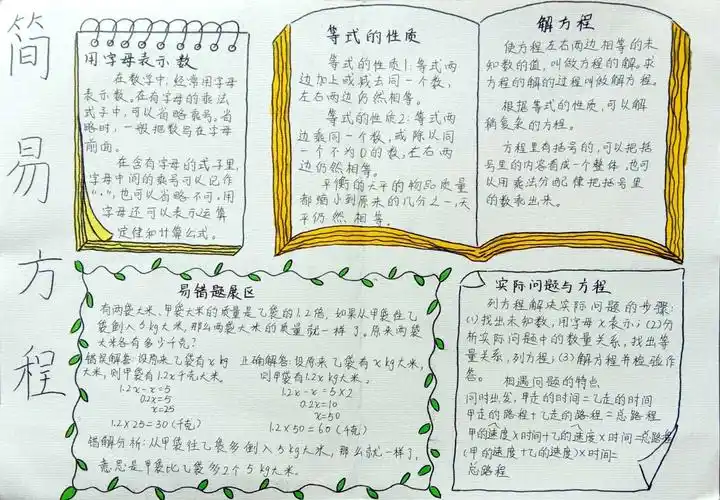 简易方程
用字母表示数
在数学中,经常用字母
表示数。在有字母的乘法
式子中,可以省略乘号。省
略时,一般把数写在字母
前面。
在含有字母的式子里,
字母中间的乘号可以记作
“·”,也可以省略不写。用
字母还可以表示运算
定律和计算公式。
等式的性质
等式的性质1:等式两
边加上或减去同一个数,
左右两边仍然相等。
等式的性质2:等式两
边乘同一个数,或除以同
一个不为0的数,左右两
边仍然相等。
平衡的天平的物品质量
都缩小到原来的几分之一,天
平仍然相等。
解方程
使方程左右两边相等的未
知数的值,叫做方程的解。求
方程的解的过程叫做解方程。
根据等式的性质,可以解
稍复杂的方程。
方程里有括号的,可以把括
号里的内容看成一个整体,也可
以用乘法分配律把括号里
的数乘出来。
易错题展区
有两袋大米,甲袋大米的质量是乙袋的1.2倍,如果从甲袋往乙
袋倒入5kg大米,那么两袋大米的质量就一样了。原来两袋
大米各有多少千克?
错误解答:设原来乙袋有xkg
大米,则甲袋有1.2x千克大米。
1.2x-x=5
0.2x=5
x=25
1.2×25=30(千克)
正确解答:设原来乙袋有xkg大米,
则甲袋有1.2xkg大米。
1.2x-x=5×2
0.2x=10
x=50
1.2×50=60(千克)
错解分析:从甲袋往乙袋多倒入5kg大米,那么就一样了,
意思是甲袋比乙袋多2个5kg大米。
实际问题与方程
列方程解决实际问题的步骤:
(1)找出未知数,用字母x表示;(2)分
析实际问题中的数量关系,找出等
量关系,列方程;(3)解方程并检验作
答。
相遇问题的特点
同时出发,甲走的时间=乙走的时间
甲走的路程+乙走的路程=总路程
甲的速度×时间+乙的速度×时间=总路程
(甲的速度+乙的速度)×时间=
总路程